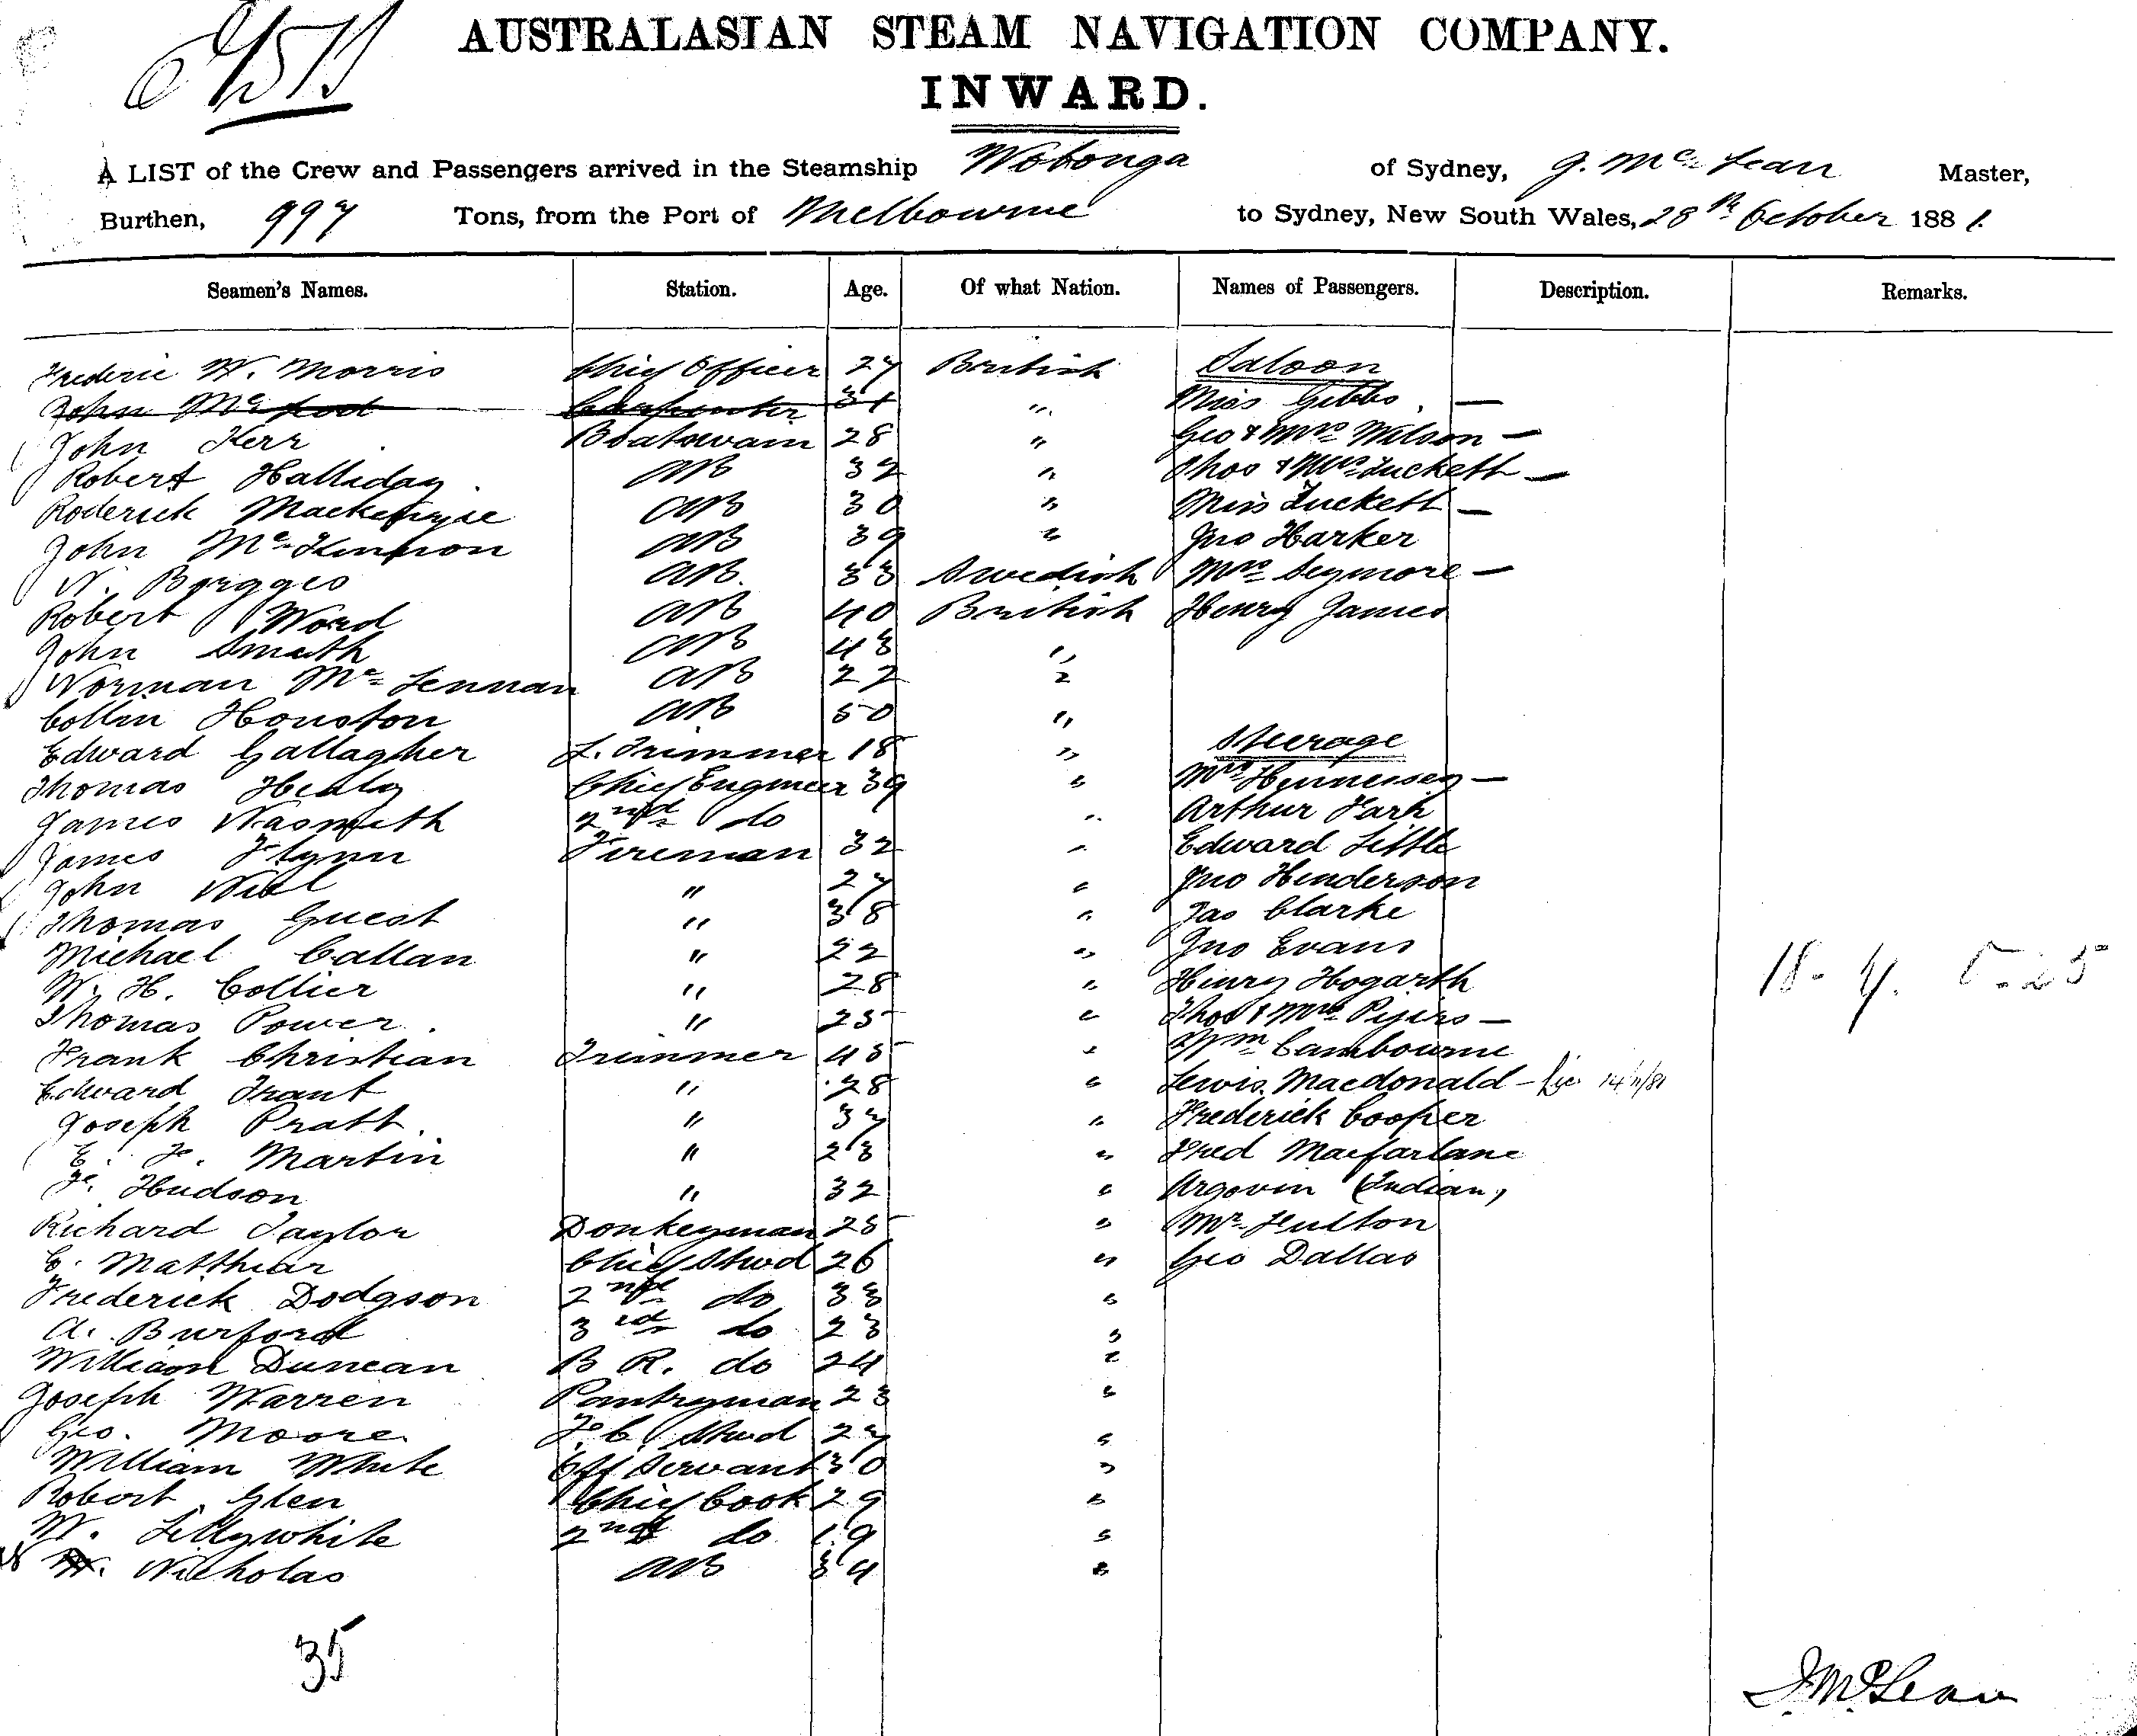 AUSTRALASIAN STEAM NAVIGATION COMPANY.
INWARD.
A LIST of the Crew and Passengers arrived in the Steamship Wotonga of Sydney, J. McLean Master,
Burthen, 997 Tons, from the Port of Melbourne to Sydney, New South Wales, 28th October 1881.
Seamen's Names. Station. Age. Of what Nation. Names of Passengers. Description. Remarks.
Frederic W. Morris Chief Officer 27 British Saloon
John McLeod Carpenter 31 " Miss Gibbs —
John Kerr Boatswain 28 " Geo & Mrs Wilson —
Robert Halliday AB 32 " Thos & Mrs Luckett —
Roderick Mackenzie AB 30 " Miss Luckett —
John McKinnon AB 39 " Jno Harker
N. AB 33 Swedish Mrs Seymore —
Robert Ward AB 40 British Henry James
John Smith AB 43 "
Norman McLennan AB 22 "
Collin Houston AB 50 "
Edward Gallagher L. Trimmer 18 " Steerage
Thomas Healy Chief Engineer 39 " Mrs Hennessey —
James Nasmith 2nd do " Arthur Park
James Flynn Fireman 32 " Edward Little
John " 27 " Jno Henderson
Thomas Guest " 38 " Jas Clarke
Michael Callan " 22 " Jno Evans
W. H. Collier " 28 " Henry Hogarth
Thomas Power " 25 " Thos & Mrs —
Frank Christian Trimmer 45 " Wm Cambourne
Edward Grant " 28 " Lewis Macdonald — 14/11/81
Joseph Pratt " 37 " Frederick Cooper
E. F. Martin " 23 " Fred Macfarlane
F. Hudson " 32 " Argovin (Indian)
Richard Taylor Donkeyman 25 " Mr Hutton
C. Matthiar Chief Stwd 26 " Geo Dallas
Frederick Dodgson 2nd do 33 "
A. Burford 3rd do 23 "
William Duncan B R. do 24 "
Joseph Warren Pantryman 23 "
Geo. Moore F C Stwd 27 "
William White Off Servant 30 "
Robert Glen Chief Cook 29 "
W. Lillywhite 2nd do 19 "
Nicholas AB 34 "
35
J McLean